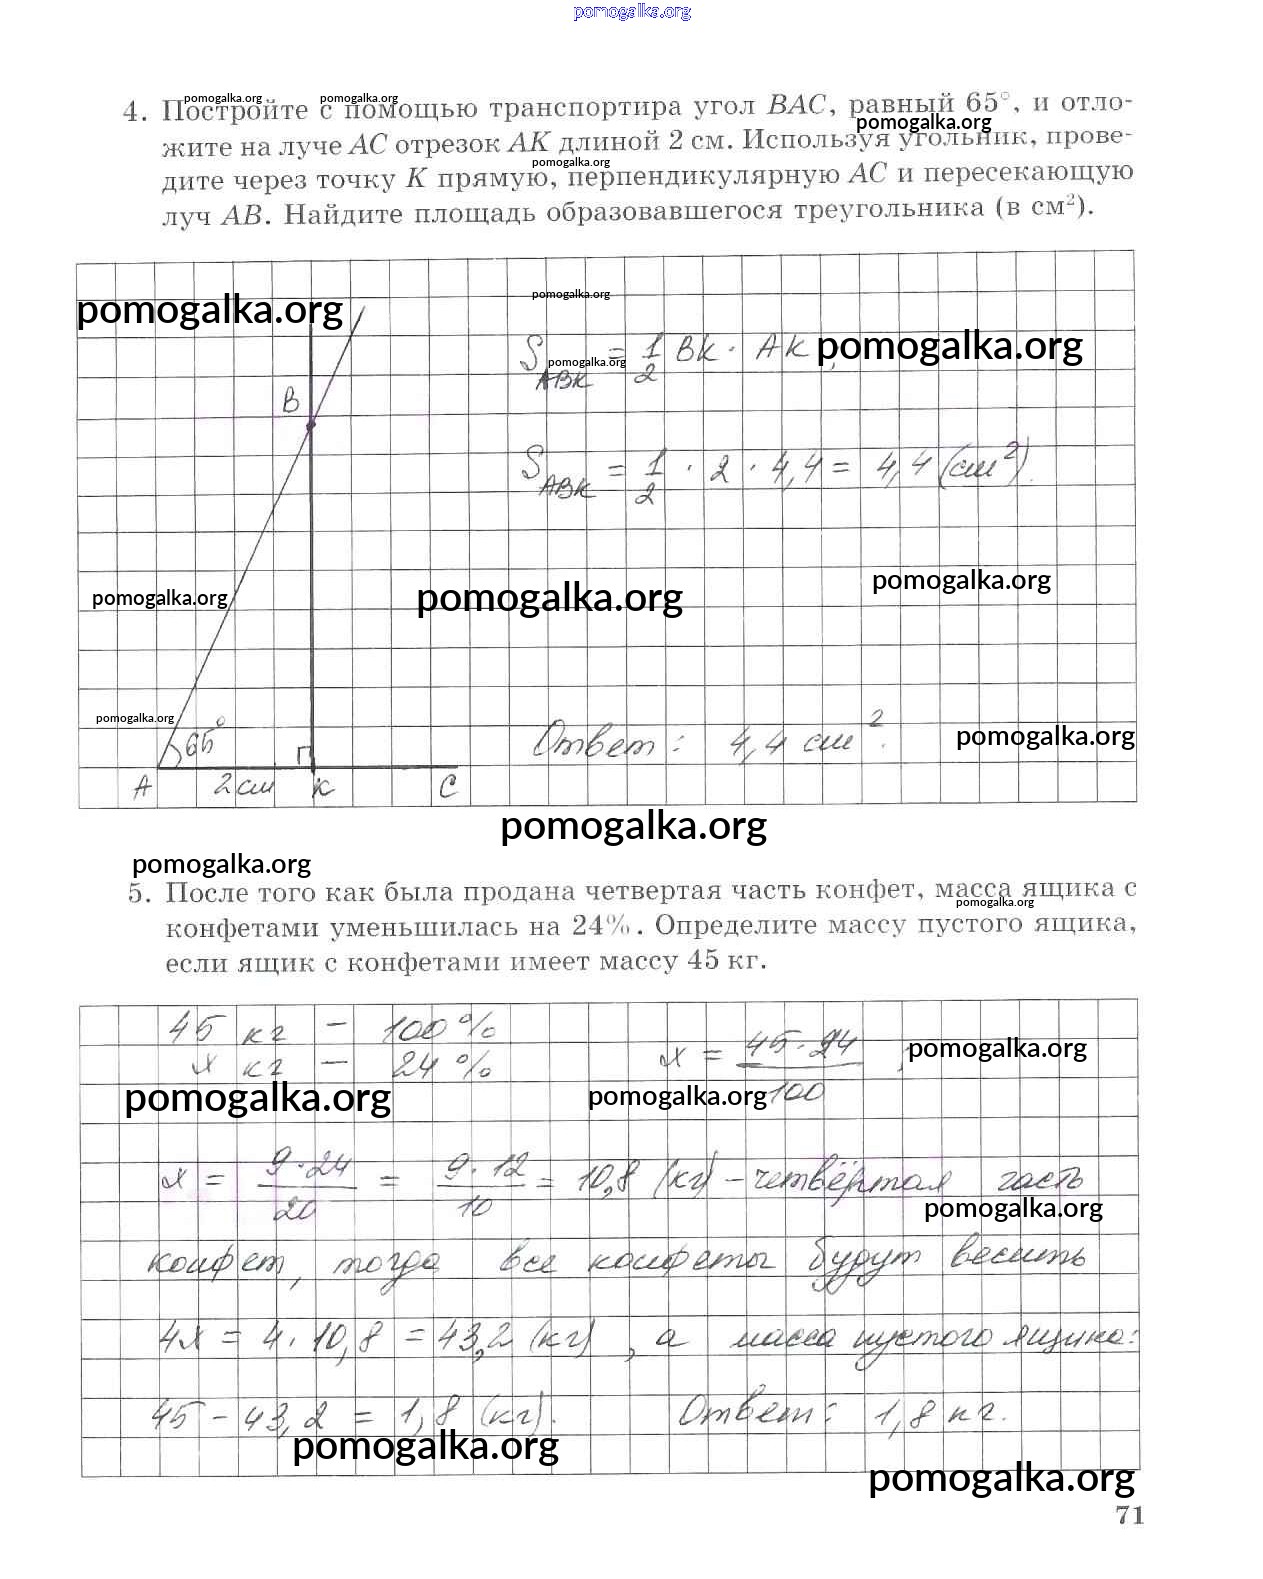 pomogalka.org
pomogalka.org pomogalka.org
4. Постройте с помощью транспортира угол BAC, равный 65°, и отло-
pomogalka.org
жите на луче AC отрезок AK длиной 2 см. Используя угольник, прове-
pomogalka.org
дите через точку K прямую, перпендикулярную AC и пересекающую
луч AB. Найдите площадь образовавшегося треугольника (в см²).
pomogalka.org
pomogalka.org
S ABK = 1/2 BK · AK,
pomogalka.org
pomogalka.org
B
S ABK = 1/2 · 2 · 4,4 = 4,4 (см²).
pomogalka.org
pomogalka.org
pomogalka.org
pomogalka.org
65°
Ответ: 4,4 см².
pomogalka.org
A 2 см K C
pomogalka.org
pomogalka.org
5. После того как была продана четвертая часть конфет, масса ящика с
pomogalka.org
конфетами уменьшилась на 24%. Определите массу пустого ящика,
если ящик с конфетами имеет массу 45 кг.
45 кг – 100%
x кг – 24% x = 45·24/100,
pomogalka.org
pomogalka.org
pomogalka.org
x = 9·24/20 = 9·12/10 = 10,8 (кг) – четвёртая часть
pomogalka.org
конфет, тогда все конфеты будут весить
4x = 4·10,8 = 43,2 (кг), а масса пустого ящика:
45 – 43,2 = 1,8 (кг). Ответ: 1,8 кг.
pomogalka.org
pomogalka.org
71